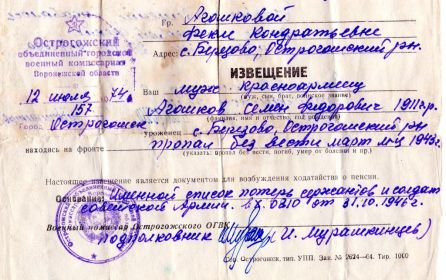 Гр. Агошковой
Фекле Кондратьевне
Адрес: с. Берёзово, Острогожский р-н.
Острогожский
объединенный городской
военный комиссариат
Воронежской области
12 июля 74 г.
157
Город Острогожск
ИЗВЕЩЕНИЕ
Ваш муж красноармеец
(муж, сын, брат, воинское звание)
Агошков Семен Федорович 1911 г.р.
(фамилия, имя и отчество, год рождения)
уроженец с. Берёзово, Острогожский р-н
находясь на фронте пропал без вести март м-ц 1943 г.
(указать: пропал без вести, погиб, умер от болезни и пр.)
Настоящее извещение является документом для возбуждения ходатайства о пенсии.
Основание: Именной список потерь сержантов и солдат
советской Армии. вх. 0310 от 31.10.1946 г.
Военный комиссар Острогожского ОГВК
подполковник И. Мурашкинцев)
Острогожск. тип. УПП. Зак. № 2624—64. Тир. 1000